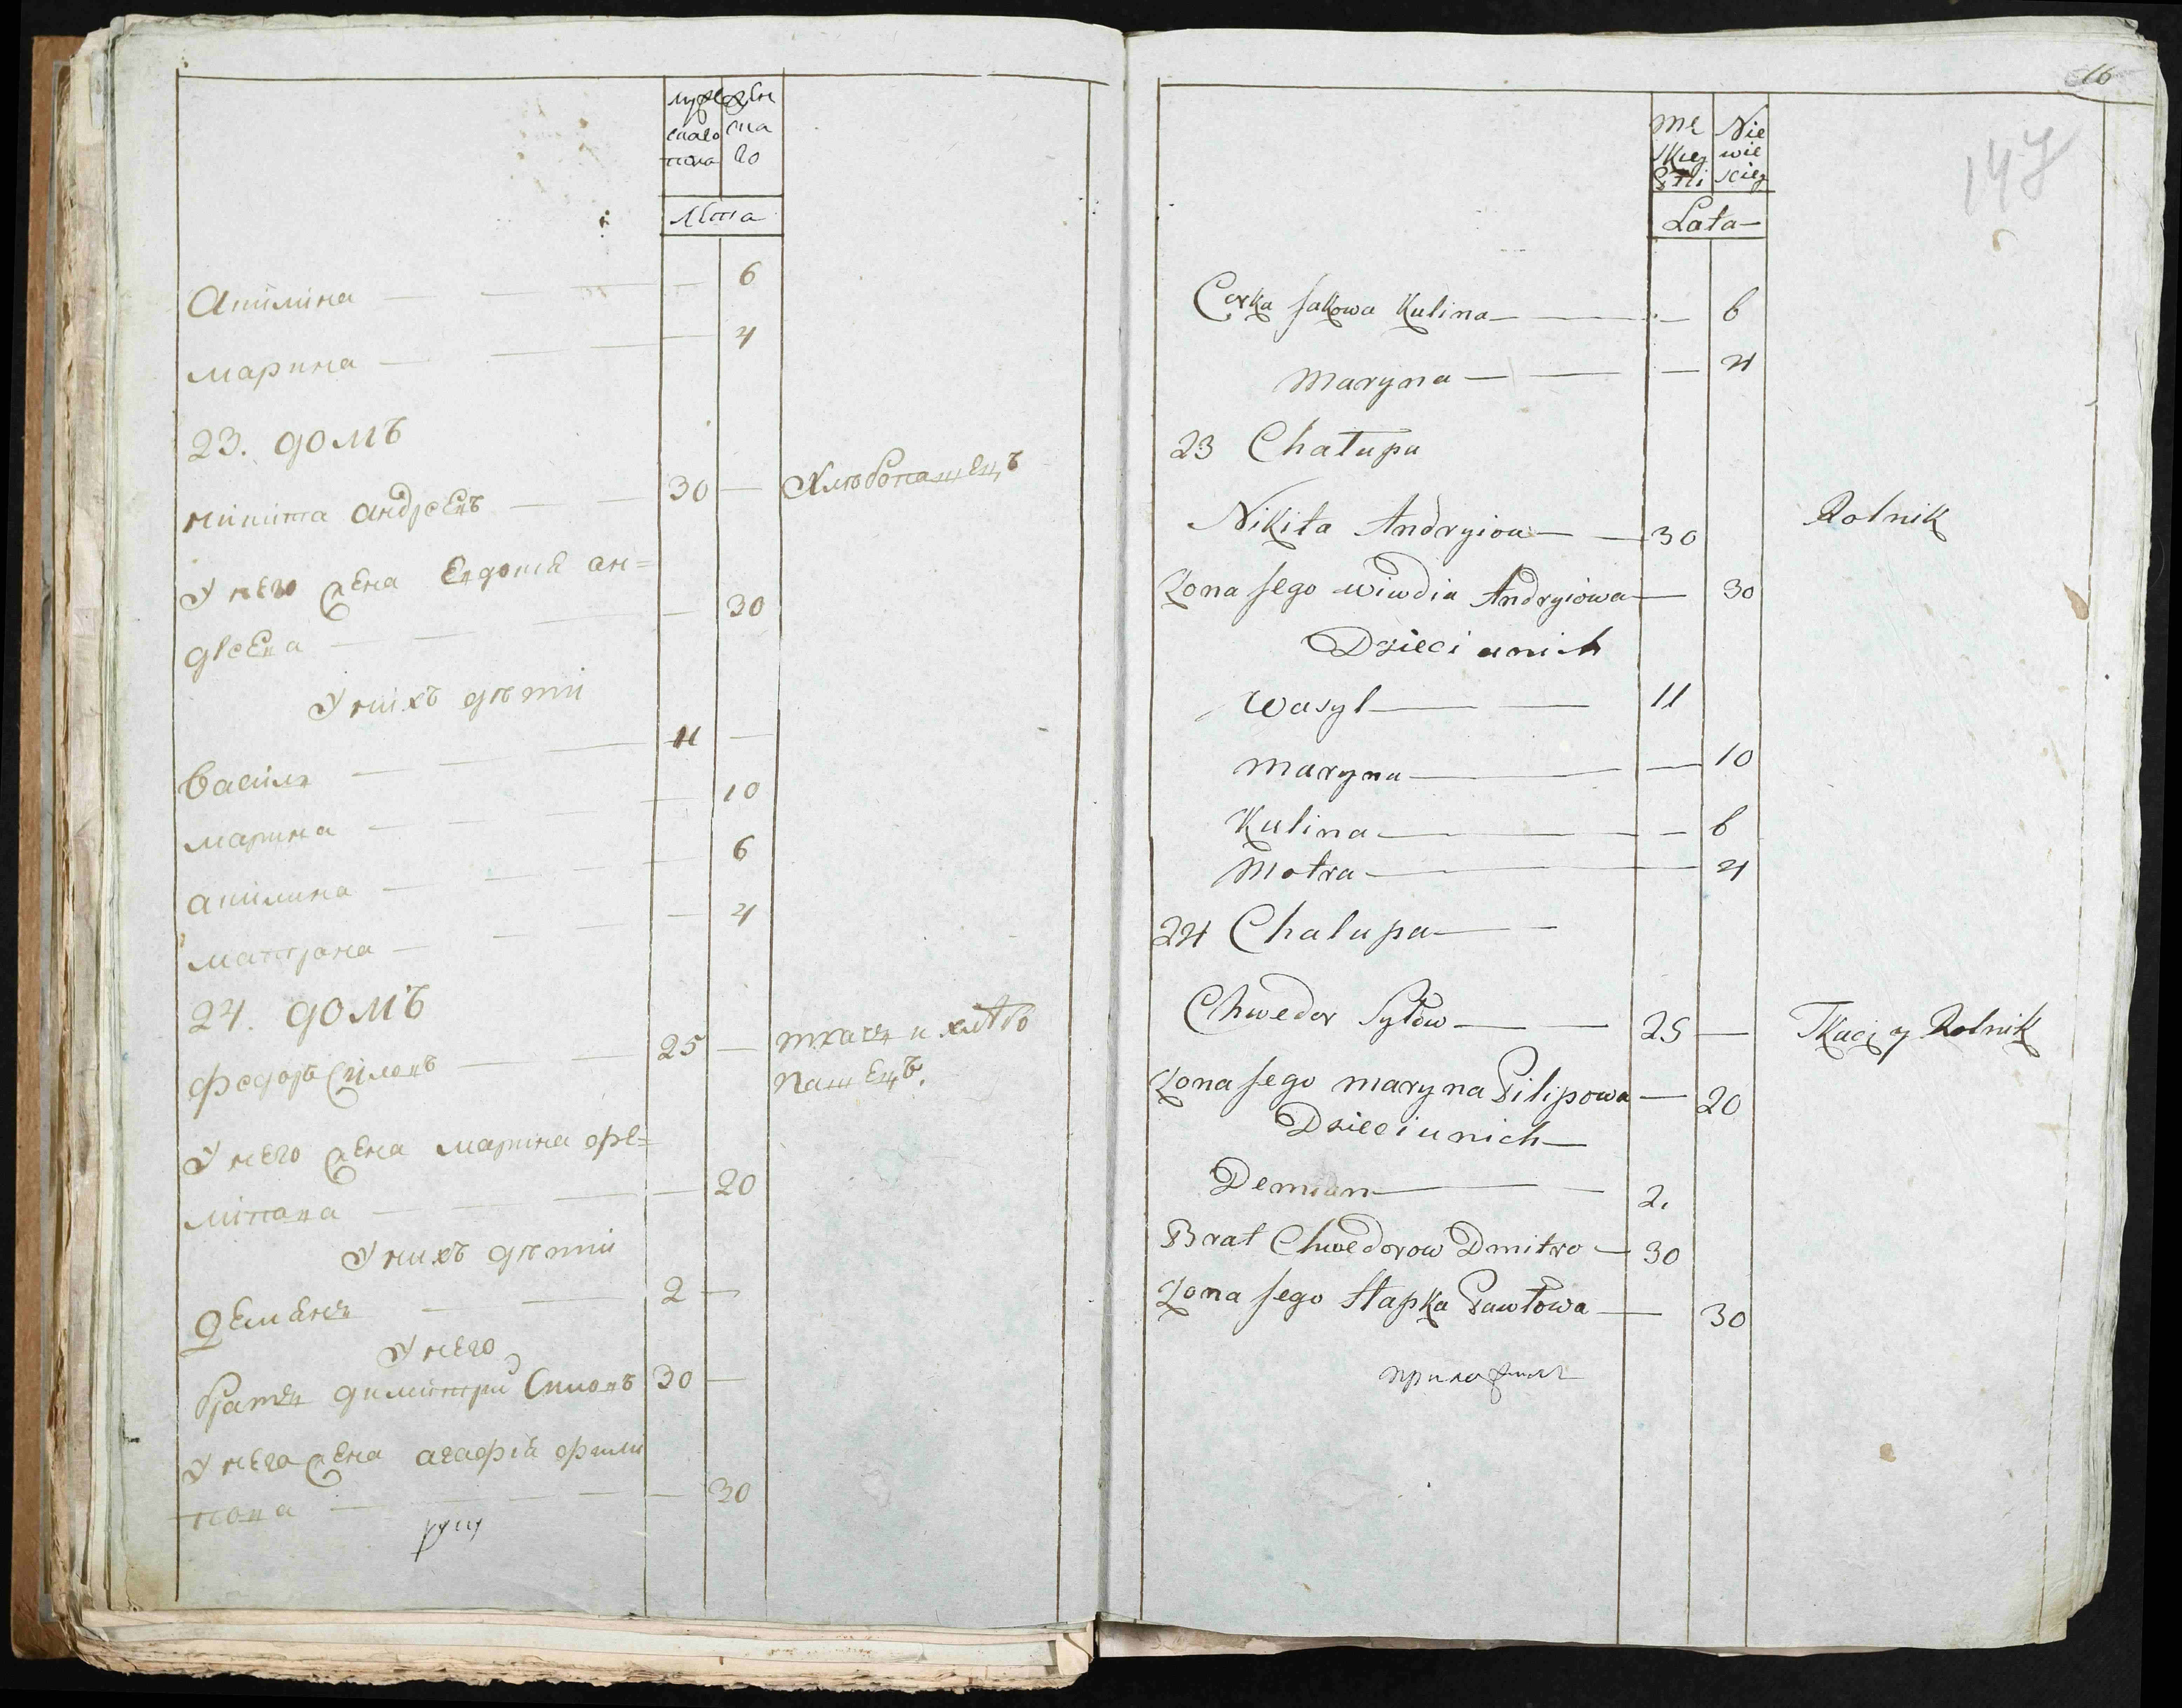 мужескаго пола
женскаго
Лѣта
Акилина — 6
марина — 4
23. домъ
никита андрѣевъ — 30 — Хлѣбопашецъ
У него жена Евдокія ан=
дрѣева — 30
У нихъ дѣти
Василь — 11 —
марина — 10
акилина — 6
матрона — 4
24. домъ
федоръ Силовъ — 25 — ткачъ и хлѣбо
пашецъ.
У него жена марина фи=
липова — 20
У нихъ дѣти
демьянъ — 2 —
У него
братъ димитрий Силовъ 30 —
У него жена агафія фили
пова — 30
16
147
Mę skiey Płci
Nie wie sciey
Lata —
Corka Jakowa Kulina — 6
Maryna — 4
23 Chałupa
Nikita Andryiow — 30 Rolnik
Żona Jego wiwdia Andryiowa — 30
Dzieci u nich
Wasyl — 11
Maryna — 10
Kulina — 6
Motra — 4
24 Chalupa —
Chwedor Syłow — 25 — Tkacz y Rolnik
Żona Jego maryna Pilipowa — 20
Dzieci u nich —
Demian — 2.
Brat Chwedorow Dmitro — 30
Żona Jego Hapka Pawłowa — 30
приложилъ